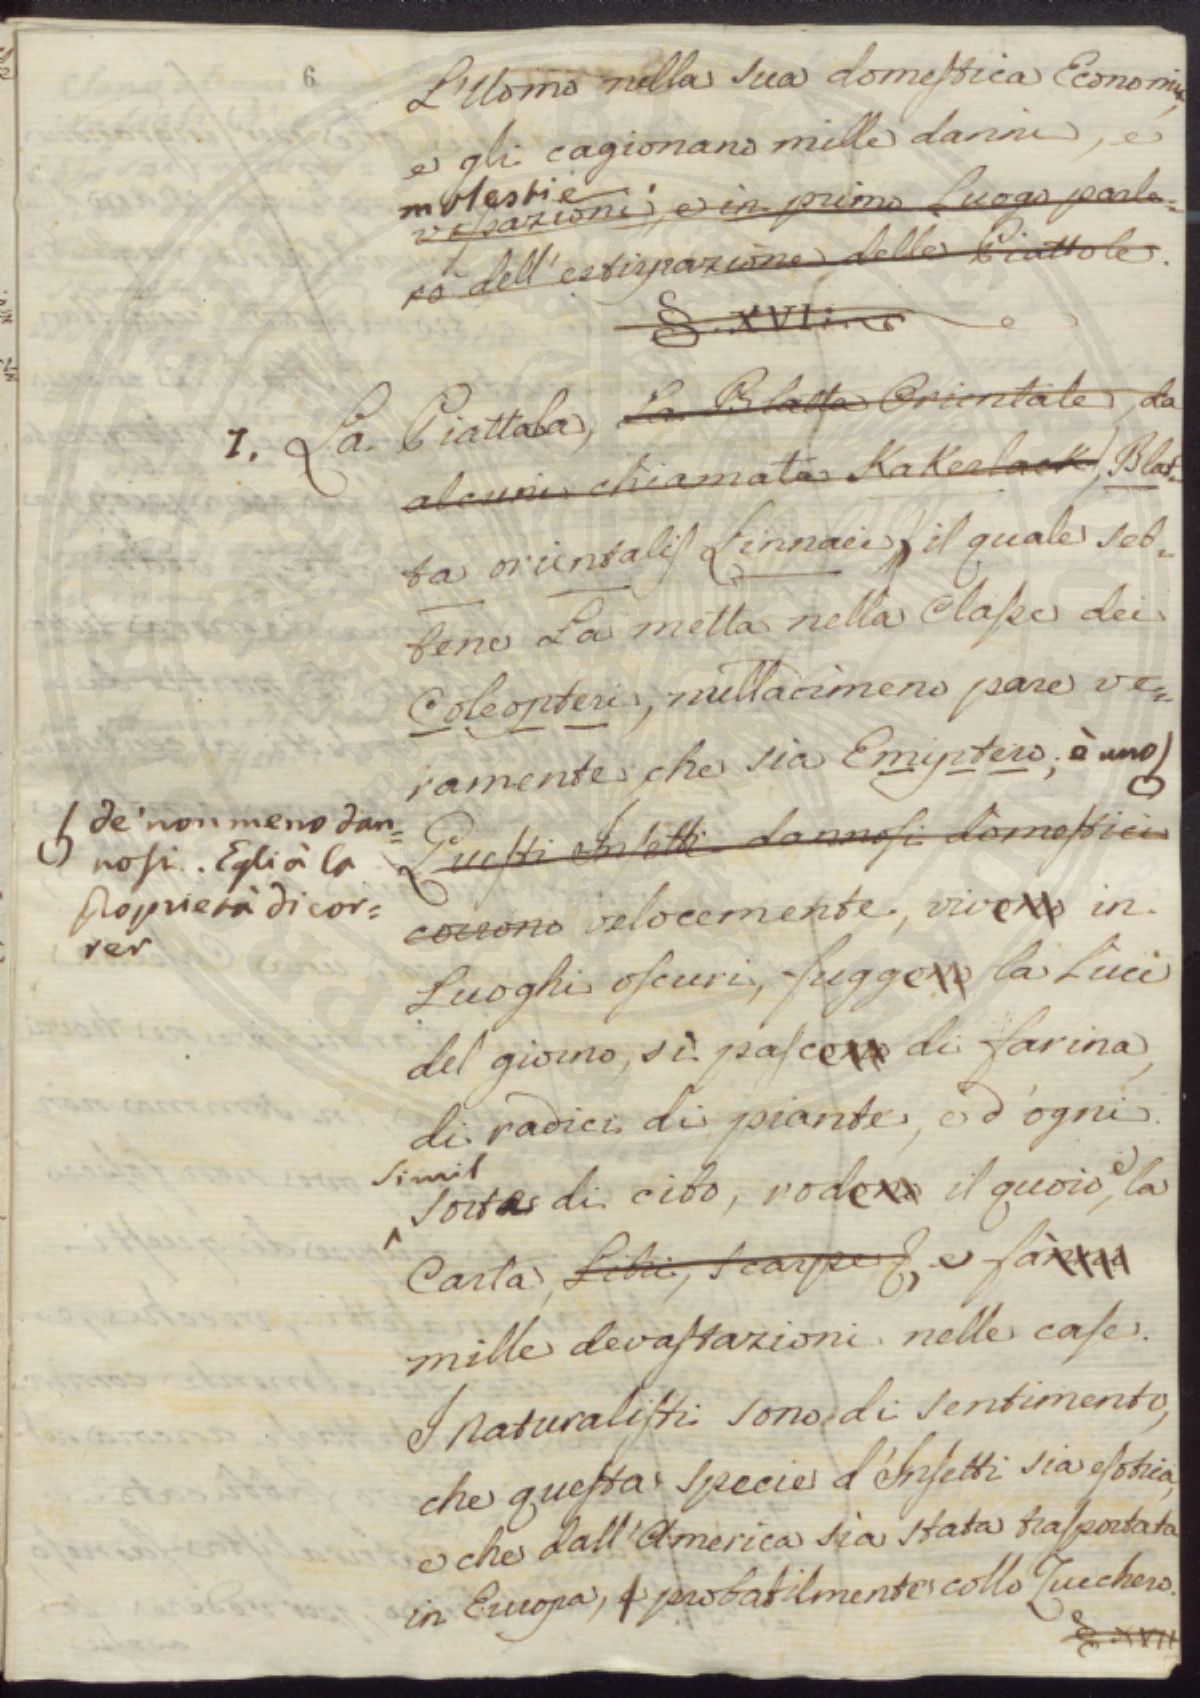 6
L'Uomo nella sua domestica Economia,
e gli cagionano mille danni, e
molestie
vessazioni, e in primo Luogo parle=
rò dell'estirpazione delle Piattole.
§. XVI.
1. La Piattola, La Blatta Orientale, da
alcuni chiamata Kakerlack, Blat=
ta orientalis Linnaei, il quale seb=
bene La metta nella Classe dei
Coleopteri, nulladimeno pare ve=
ramente che sia Emiptero; è uno
de' non meno dan=
nosi. Egli à la
proprietà di cor=
rer
Questi Insetti dannosi domestici
corrono velocemente, vivono in
Luoghi oscuri, fuggono la Luce
del giorno, si pascono di farina,
di radici di piante, e d'ogni
simil
sorta di cibo, rodono il quoio, e la
Carta, Libri, scarpe, e fanno
mille devastazioni nelle case.
I Naturalisti sono di sentimento,
che questa specie d'Insetti sia esotica,
e che dall'America sia stata trasportata
in Europa, e probabilmente collo Zucchero.
§. XVII